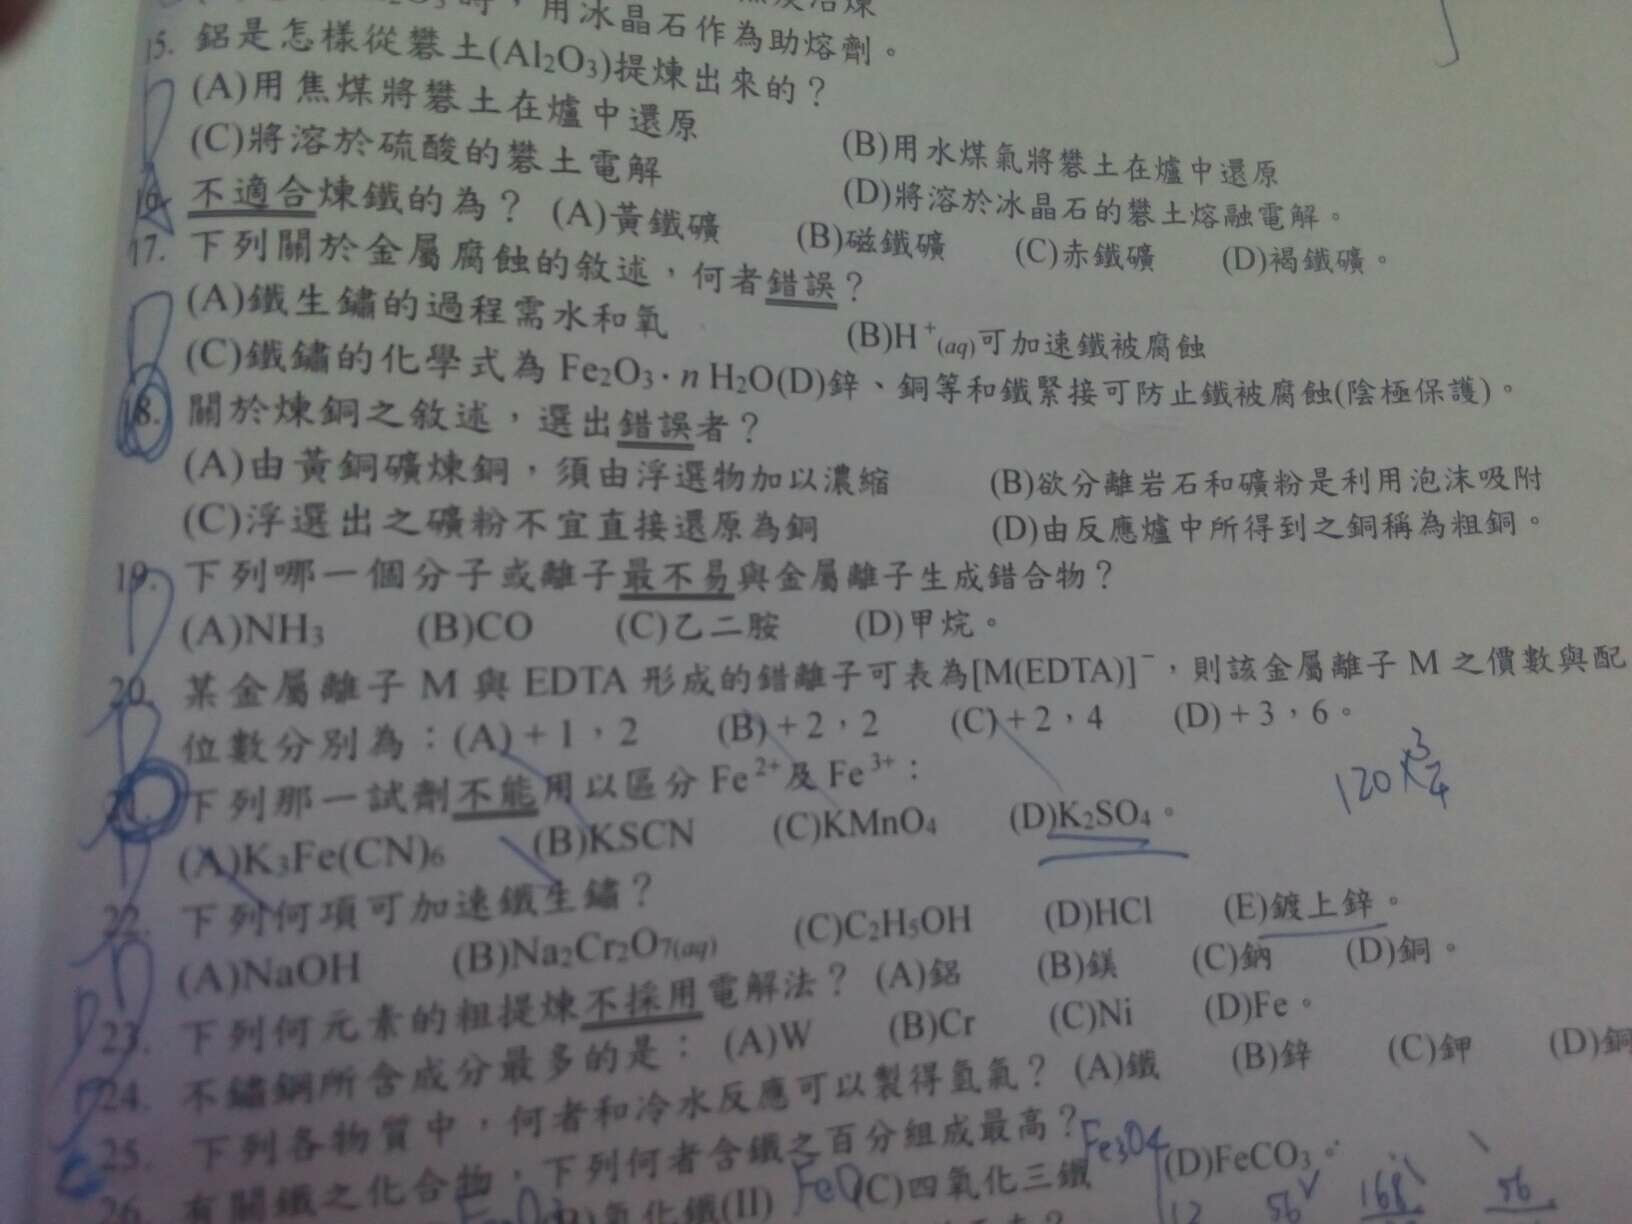 用冰晶石作為助熔劑。
15. 鋁是怎樣從礬土(Al₂O₃)提煉出來的？
(A)用焦煤將礬土在爐中還原 (B)用水煤氣將礬土在爐中還原
(C)將溶於硫酸的礬土電解 (D)將溶於冰晶石的礬土熔融電解。
16. 不適合煉鐵的為？ (A)黃鐵礦 (B)磁鐵礦 (C)赤鐵礦 (D)褐鐵礦。
17. 下列關於金屬腐蝕的敘述，何者錯誤？
(A)鐵生鏽的過程需水和氧 (B)H⁺(aq)可加速鐵被腐蝕
(C)鐵鏽的化學式為 Fe₂O₃·n H₂O(D)鋅、銅等和鐵緊接可防止鐵被腐蝕(陰極保護)。
18. 關於煉銅之敘述，選出錯誤者？
(A)由黃銅礦煉銅，須由浮選物加以濃縮 (B)欲分離岩石和礦粉是利用泡沫吸附
(C)浮選出之礦粉不宜直接還原為銅 (D)由反應爐中所得到之銅稱為粗銅。
19. 下列哪一個分子或離子最不易與金屬離子生成錯合物？
(A)NH₃ (B)CO (C)乙二胺 (D)甲烷。
20. 某金屬離子 M 與 EDTA 形成的錯離子可表為[M(EDTA)]⁻，則該金屬離子 M 之價數與配
位數分別為：(A)+1，2 (B)+2，2 (C)+2，4 (D)+3，6。
120×3/4
21. 下列那一試劑不能用以區分 Fe²⁺及 Fe³⁺：
(A)K₃Fe(CN)₆ (B)KSCN (C)KMnO₄ (D)K₂SO₄。
22. 下列何項可加速鐵生鏽？
(A)NaOH (B)Na₂Cr₂O₇(aq) (C)C₂H₅OH (D)HCl (E)鍍上鋅。
23. 下列何元素的粗提煉不採用電解法？ (A)鋁 (B)鎂 (C)鈉 (D)銅。
24. 不鏽鋼所含成分最多的是： (A)W (B)Cr (C)Ni (D)Fe。
25. 下列各物質中，何者和冷水反應可以製得氫氣？ (A)鐵 (B)鋅 (C)鉀 (D)銅
26. 有關鐵之化合物，下列何者含鐵之百分組成最高？
氧化鐵(II) FeO (C)四氧化三鐵 Fe₃O₄ (D)FeCO₃。
12 56 168 56